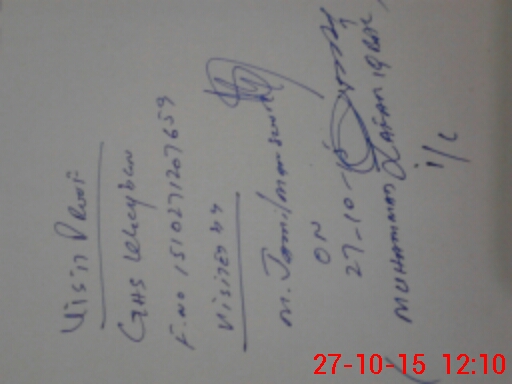 Visit Proof
GHS Khayben
F.No 1510271207659
Visited by
M. Jamil mansuri
ON
27-10-15
MUHAMMAD Zafar iqbal
i/c
27-10-15 12:10